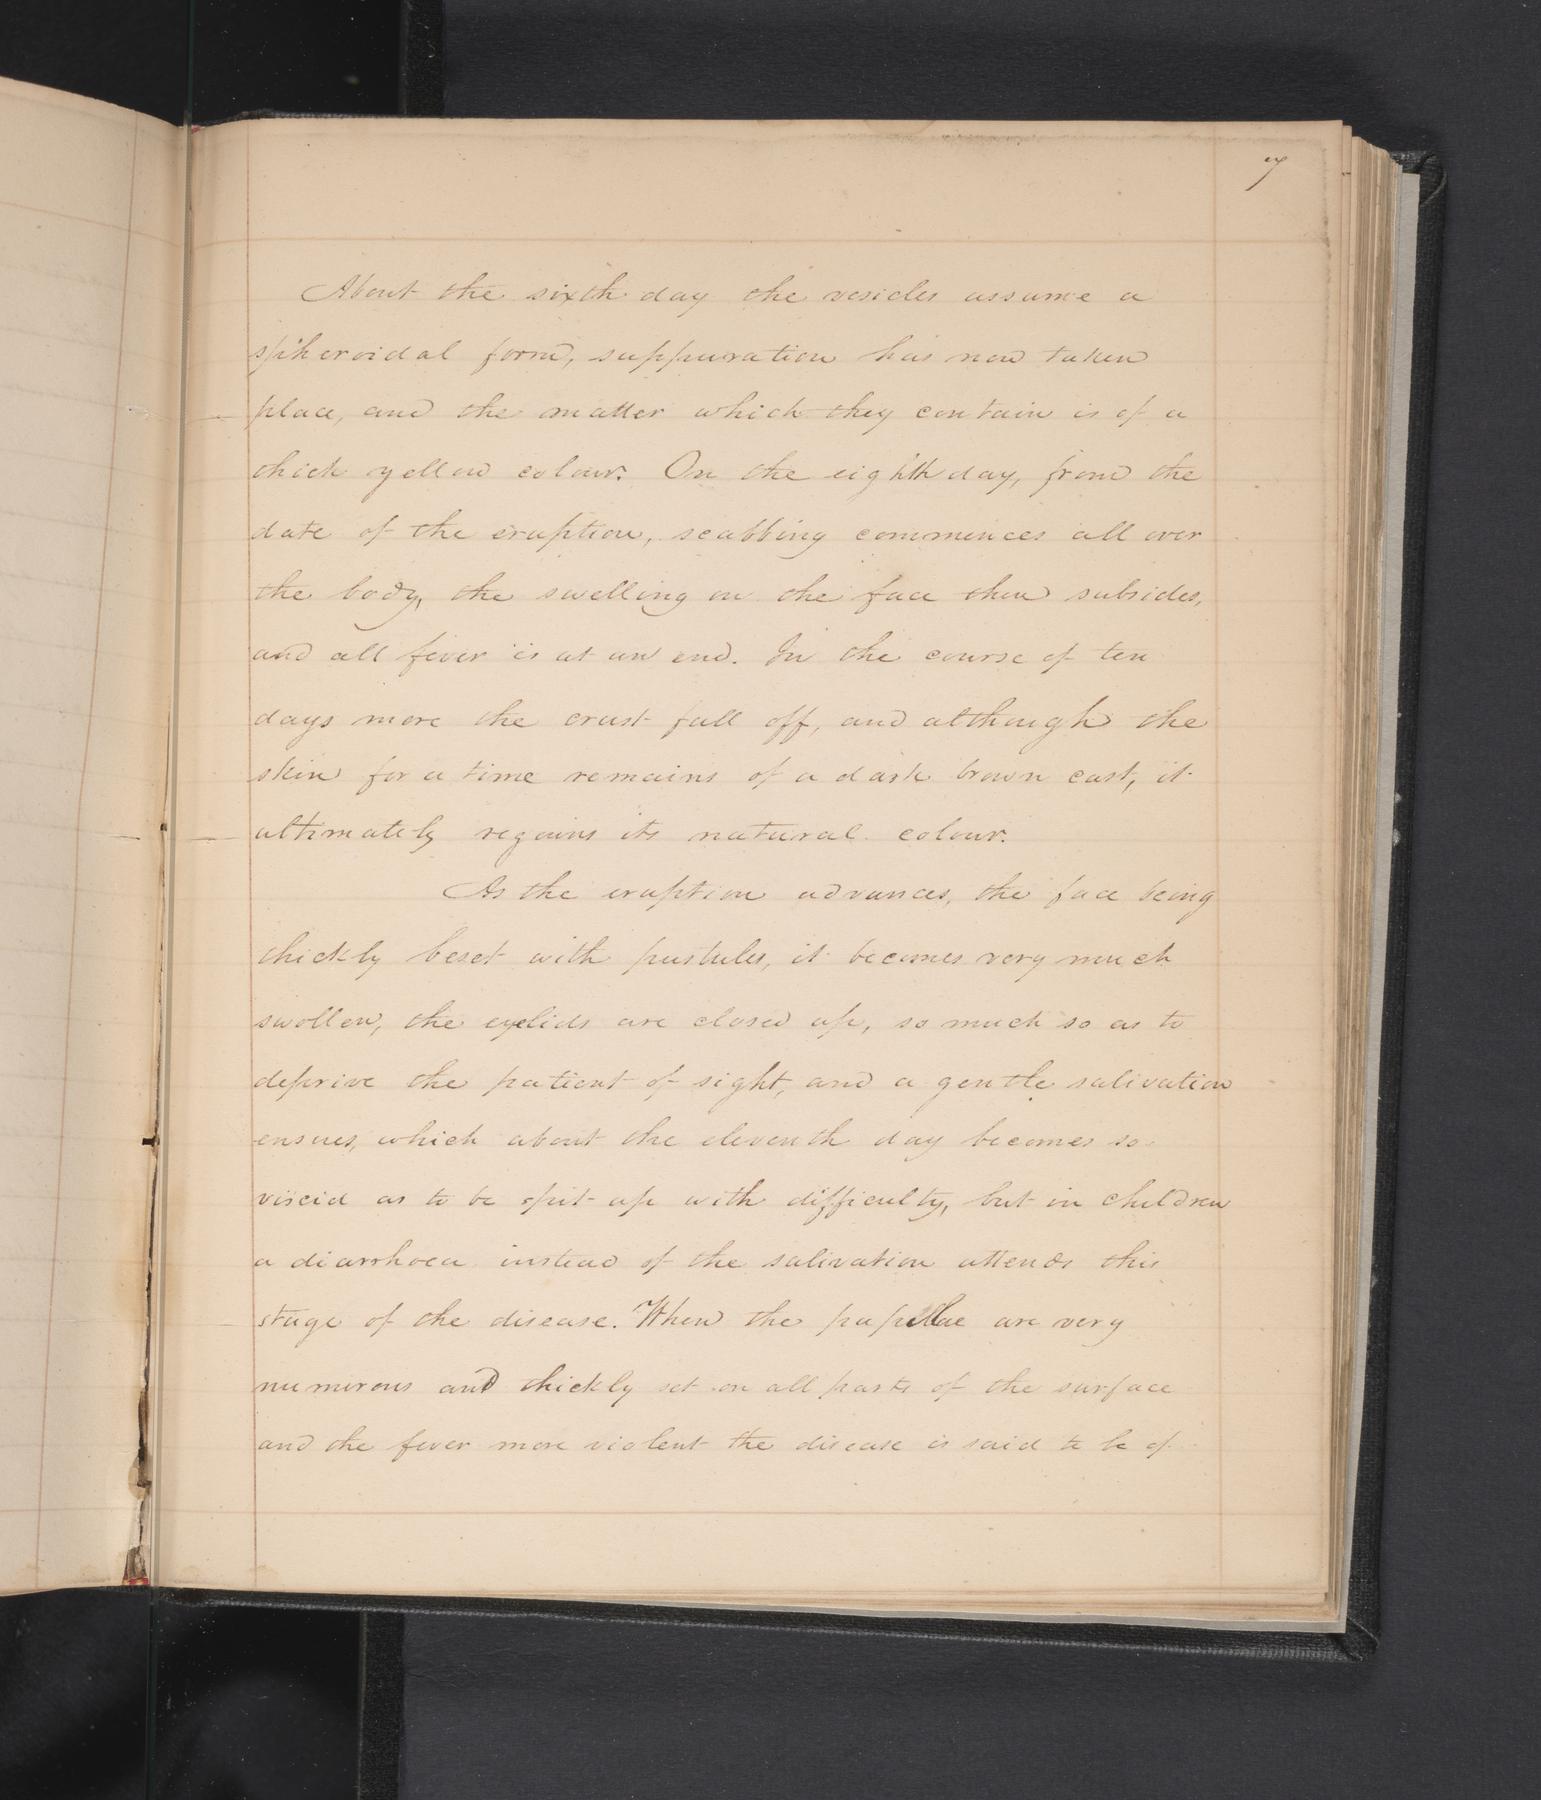 7
About the sixth day the vesicles assume a
spheroidal form, suppuration has now taken
place, and the matter which they contain is of a
thick yellow colour. On the eighth day, from the
date of the eruption, scabbing commences all over
the body, the swelling on the face then subsides,
and all fever is at an end. In the course of ten
days more the crust fall off, and although the
skin for a time remains of a dark brown cast, it
ultimately regains its natural colour.
As the eruption advances, the face being
thickly beset with pustules, it becomes very much
swollen, the eyelids are closed up, so much so as to
deprive the patient of sight, and a gentle salivation
ensues, which about the eleventh day becomes so
viscid as to be spit up with difficulty, but in children
a diarrhoea instead of the salivation attends this
stage of the disease. When the papillae are very
numerous and thickly set on all parts of the surface
and the fever more violent the disease is said to be of